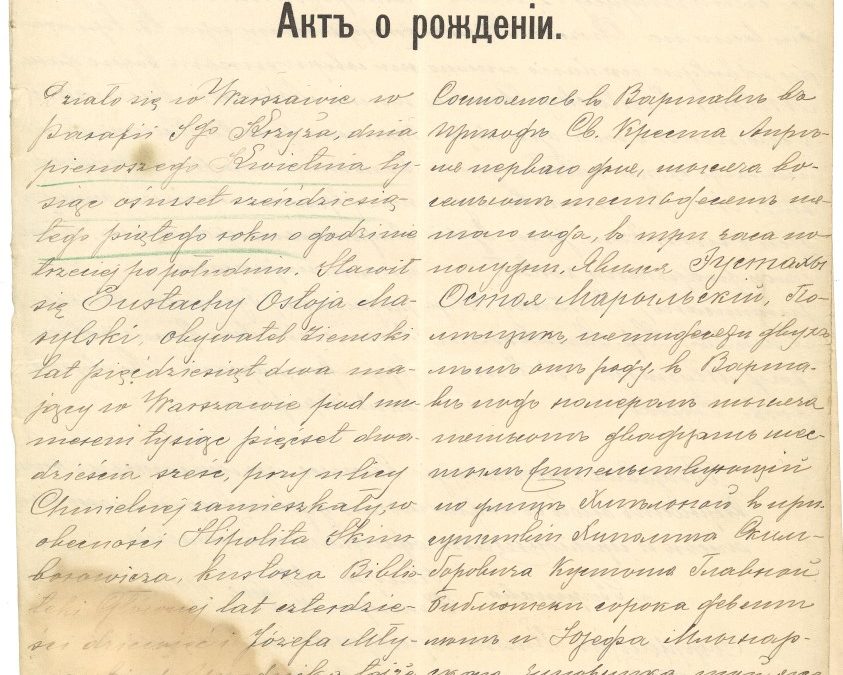 Актъ о рожденіи.
Działo się w Warszawie w
Parafii Sgo Krzyża, dnia
pierwszego Kwietnia ty-
siąc ośmset sześćdziesią-
tego piątego roku o godzinie
trzeciej po południu. Stawił
się Eustachy Ostoja Ma-
rylski, obywatel ziemski
lat pięćdziesiąt dwa ma-
jący w Warszawie pod nu-
merem tysiąc pięćset dwa-
dzieścia sześć, przy ulicy
Chmielnej zamieszkały, w
obecności Hipolita Skim-
borowicza, kustosza Biblio-
teki Głównej lat czterdzie-
ści dziewięć i Józefa Mły-
Состоялось въ Варшавѣ въ
приходѣ Св. Креста Апрѣ-
ля перваго дня, тысяча во-
семьсотъ шестьдесятъ пя-
таго года, въ три часа по-
полудни. Явился Густахы
Остоя Марыльскій, По-
мѣщикъ, пятидесяти двухъ
лѣтъ отъ роду, въ Варша-
вѣ подъ номеромъ тысяча
пятьсотъ двадцать шес-
тымъ жительствующій
по улицѣ Хмѣльной въ при-
сутствіи Хиполита Ским-
боровича Кустоша Главной
Библіотеки сорока девяти
лѣтъ и Іозефа Млынар-